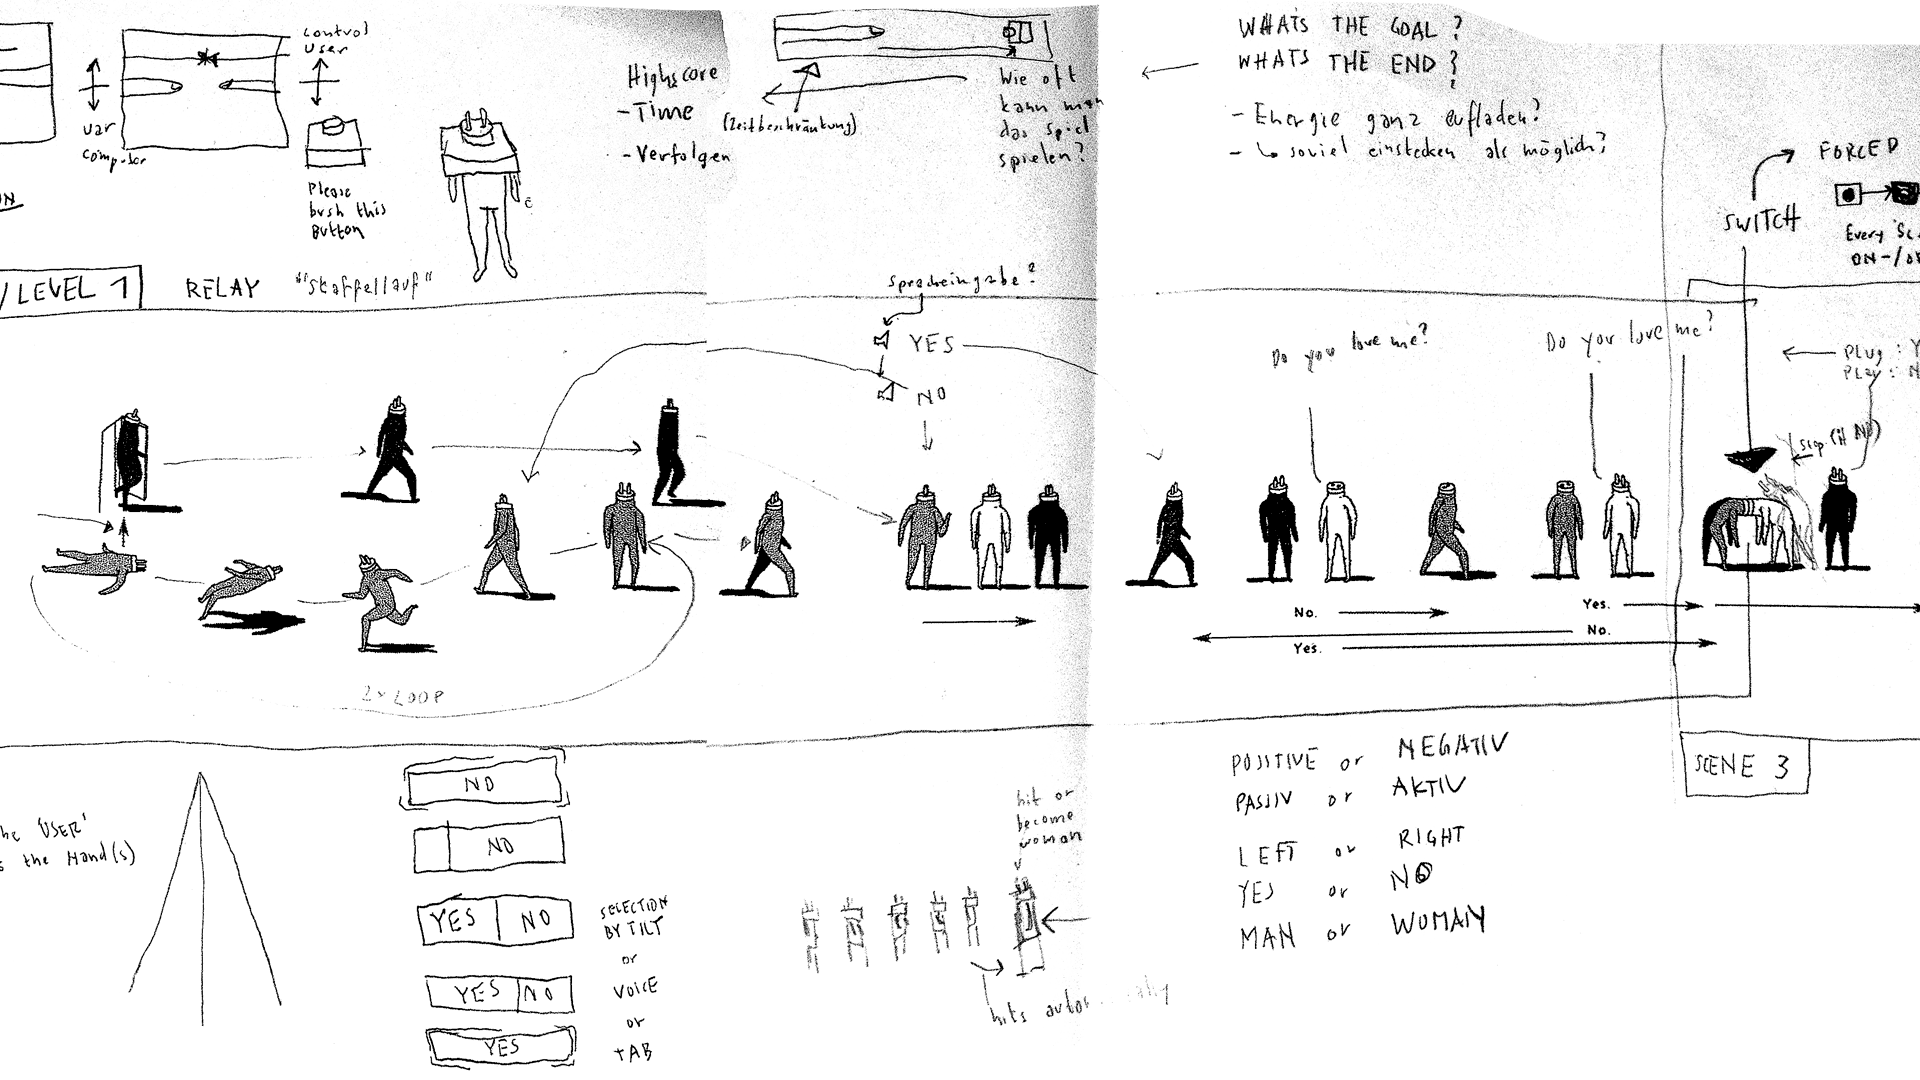 control
user
var
computer
Please
push this
Button
Highscore
-Time
-Verfolgen
(Zeitbeschränkung)
Wie oft
kann man
das spiel
spielen?
WHATS THE GOAL?
WHATS THE END?
- Energie ganz aufladen?
- ↳ soviel einstecken als möglich?
FORCED
SWITCH
Every
ON-/
/LEVEL 1
RELAY "staffellauf"
Spracheingabe?
YES
NO
Do you love me?
Do you love me?
PLUG : Y
PLAY : N
stop (if NO)
No.
Yes.
No.
Yes.
2x LOOP
'USER'
the Hand(s)
NO
NO
YES NO
YES NO
YES
SELECTION
BY TILT
or
VOICE
or
TAB
hit or
become
woman
hits automatically
POSITIVE or NEGATIV
PASSIV or AKTIV
LEFT or RIGHT
YES or NO
MAN or WOMAN
SCENE 3